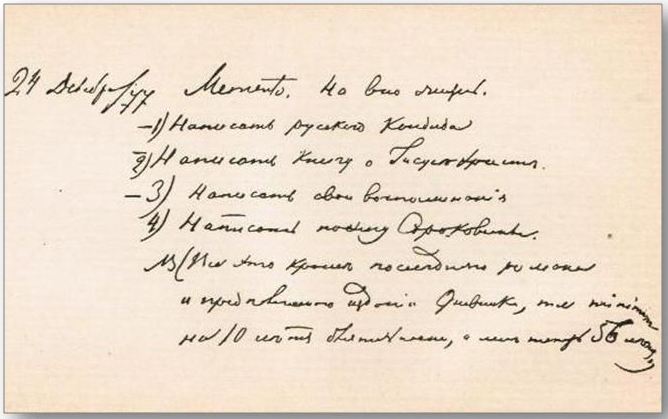 24 декабря/77 Memento. На всю жизнь.
1) Написать русского Кандида
2) Написать книгу о Иисусе Христе.
3) Написать свои воспоминания
4) Написать поэму Сороковины.
NB (Все это, кроме последнего романа
и предполагаемого издания Дневника, т.е. minimum
на 10 лет деятельности, а мне теперь 56 лет.)